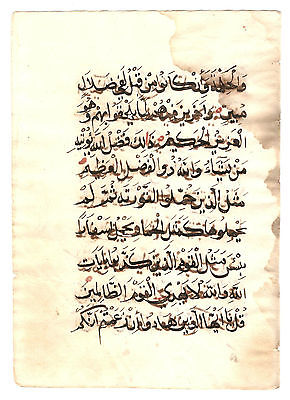 والحكمة وإن كانوا من قبل لفي ضلال
مبين وآخرين منهم لما يلحقوا بهم وهو
العزيز الحكيم ذلك فضل الله يؤتيه
من يشاء والله ذو الفضل العظيم
مثل الذين حملوا التورية ثم لم
يحملوها كمثل الحمار يحمل أسفارا
بئس مثل القوم الذين كذبوا بآيات
الله والله لا يهدي القوم الظالمين
قل يا أيها الذين هادوا إن زعمتم أنكم